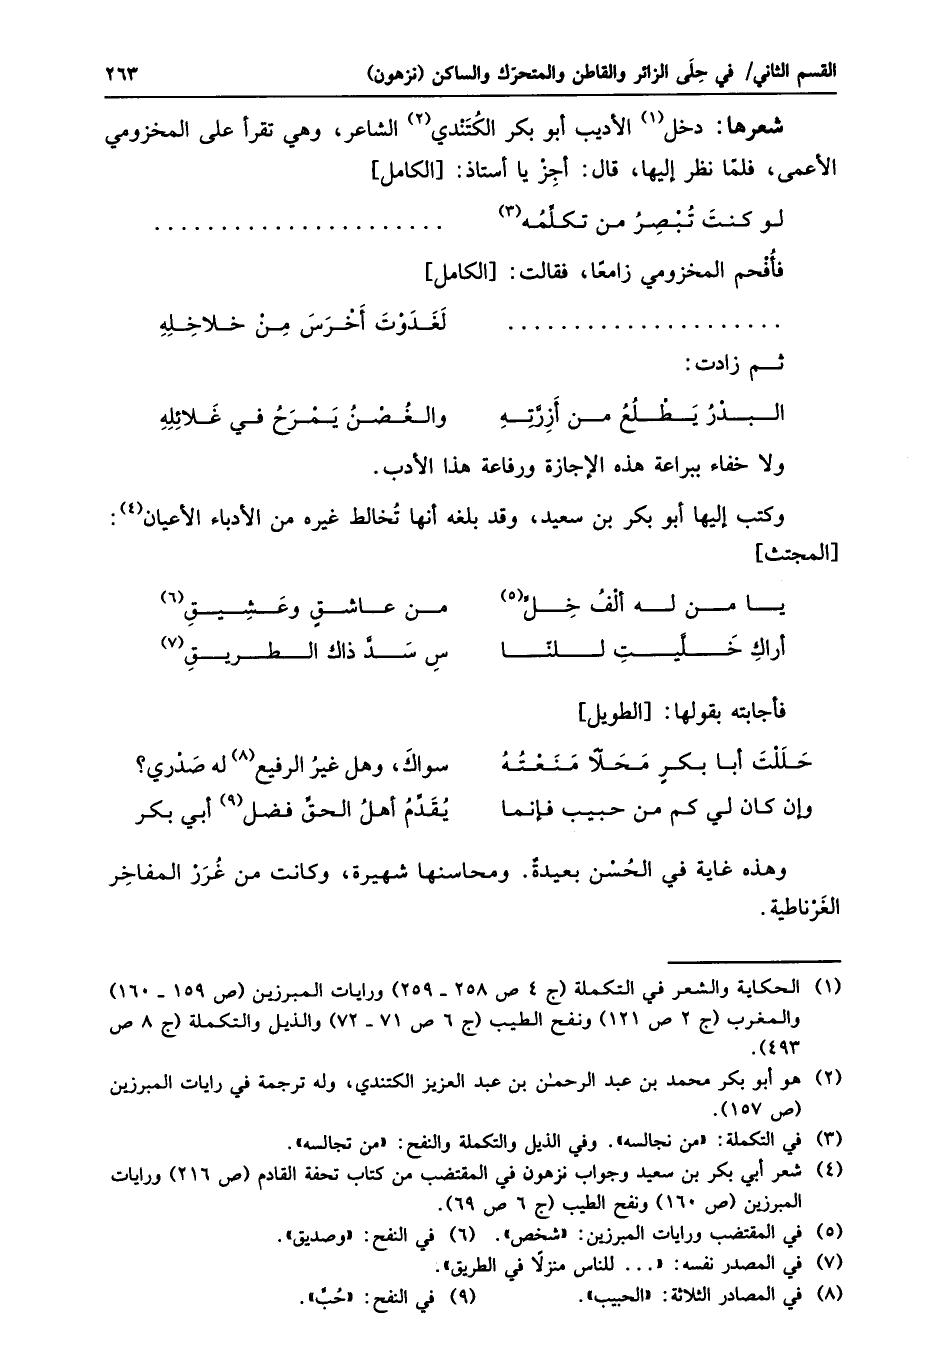 القسم الثاني/ في حِلَى الزائر والقاطن والمتحرّك والساكن (نزهون) ٢٦٣
شعرها: دخل(١) الأديب أبو بكر الكُتَنْدي(٢) الشاعر، وهي تقرأ على المخزومي
الأعمى، فلمّا نظر إليها، قال: أجِزْ يا أستاذ: [الكامل]
لو كنتَ تُبْصِرُ من تكلّمُه(٣) . . . . . . . . . . . . . . . . . . . . . .
فأُفْحم المخزومي زامعًا، فقالت: [الكامل]
. . . . . . . . . . . . . . . . . . . . . لَغَدَوْتَ أَخْرَسَ مِنْ خلاخِلِهِ
ثم زادت:
البدْرُ يَطْلُعُ من أَزِرَّتِهِ والغُصْنُ يَمْرَحُ في غَلائِلِهِ
ولا خفاء ببراعة هذه الإجازة ورفاعة هذا الأدب.
وكتب إليها أبو بكر بن سعيد، وقد بلغه أنها تُخالط غيره من الأدباء الأعيان(٤):
[المجتث]
يا من له ألْفُ خِلٍّ(٥) من عاشقٍ وعَشِيقِ(٦)
أراكِ خَلَّيتِ للنّا سِ سَدَّ ذاك الطريقِ(٧)
فأجابته بقولها: [الطويل]
حَلَلْتَ أبا بكرٍ مَحَلّا مَنَعْتُهُ سواكَ، وهل غيرُ الرفيع(٨) له صَدْري؟
وإن كان لي كم من حبيب فإنما يُقَدَّمُ أهلُ الحقِّ فضل(٩) أبي بكر
وهذه غاية في الحُسْن بعيدةٌ. ومحاسنها شهيرة، وكانت من غُرَرْ المفاخِر
الغَرْناطية.
(١) الحكاية والشعر في التكملة (ج ٤ ص ٢٥٨ ـ ٢٥٩) ورايات المبرزين (ص ١٥٩ ـ ١٦٠)
والمغرب (ج ٢ ص ١٢١) ونفح الطيب (ج ٦ ص ٧١ ـ ٧٢) والذيل والتكملة (ج ٨ ص
٤٩٣).
(٢) هو أبو بكر محمد بن عبد الرحمٰن بن عبد العزيز الكتندي، وله ترجمة في رايات المبرزين
(ص ١٥٧).
(٣) في التكملة: «من نجالسه». وفي الذيل والتكملة والنفح: «من تجالسه».
(٤) شعر أبي بكر بن سعيد وجواب نزهون في المقتضب من كتاب تحفة القادم (ص ٢١٦) ورايات
المبرزين (ص ١٦٠) ونفح الطيب (ج ٦ ص ٦٩).
(٥) في المقتضب ورايات المبرزين: «شخص». (٦) في النفح: «وصديق».
(٧) في المصدر نفسه: «... للناس منزلًا في الطريق».
(٨) في المصادر الثلاثة: «الحبيب». (٩) في النفح: «حُبَّ».